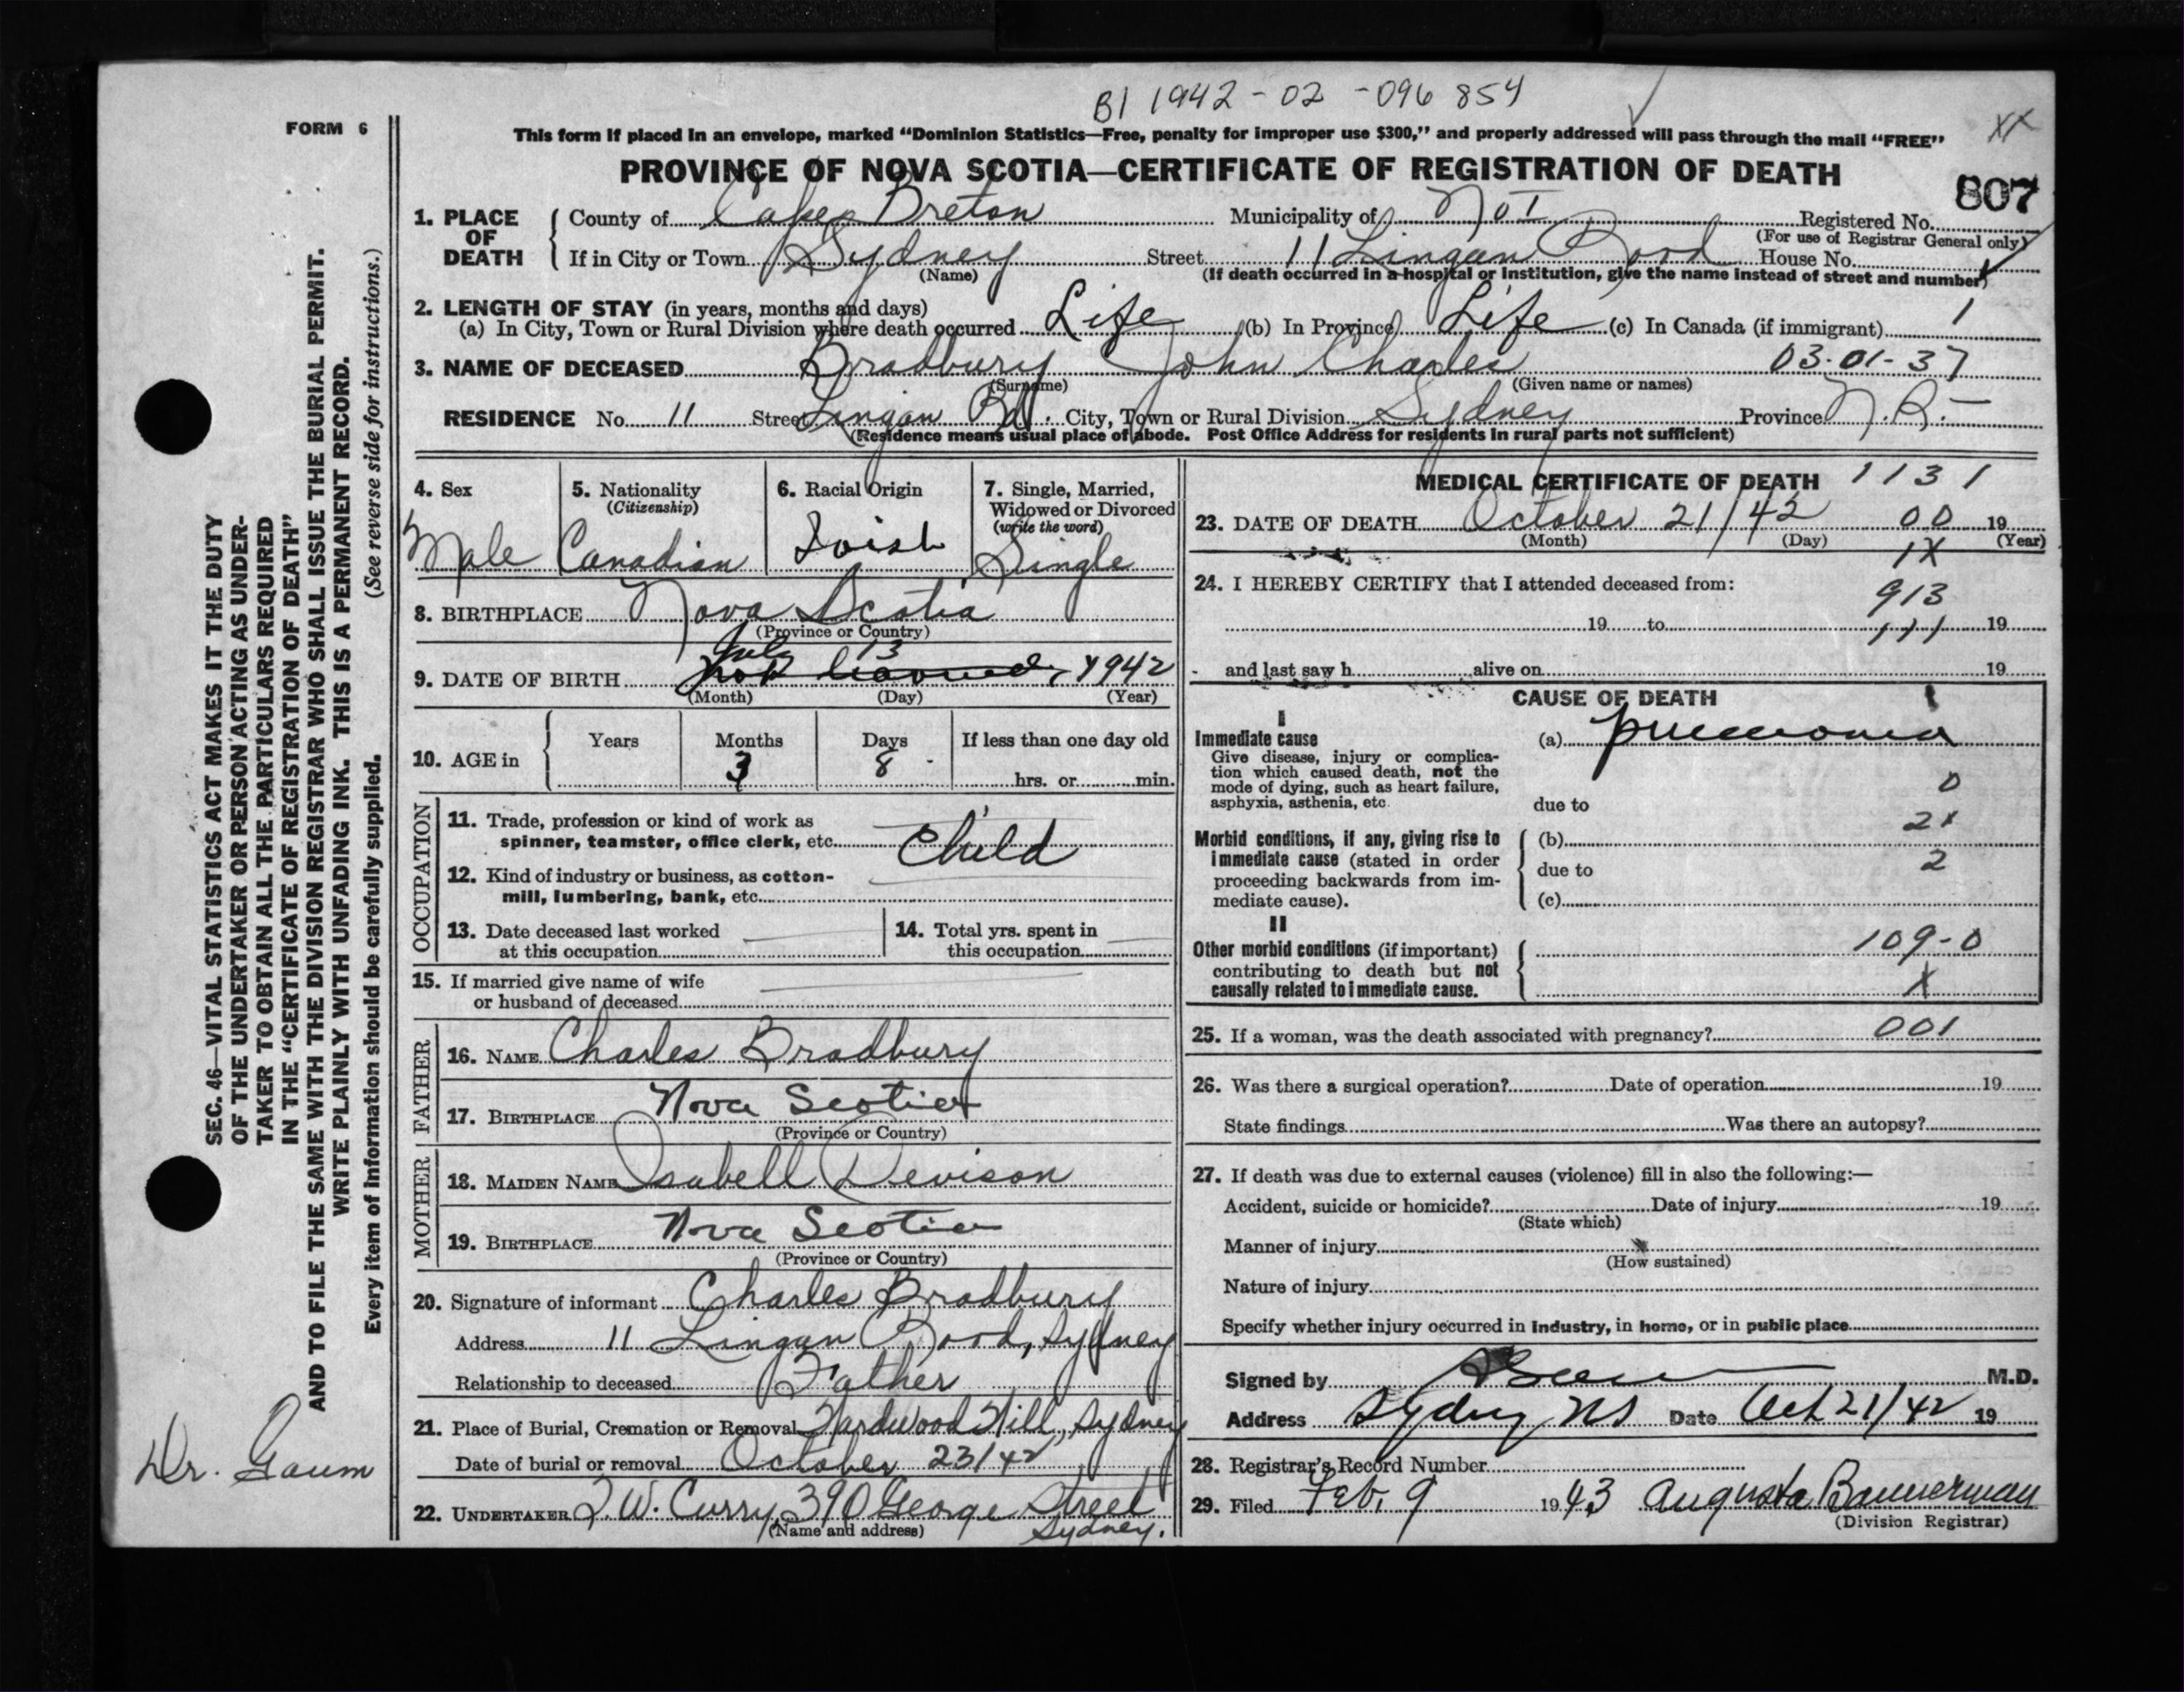 B1 1942-02-096854
FORM 6
This form if placed in an envelope, marked "Dominion Statistics—Free, penalty for improper use $300," and properly addressed will pass through the mail "FREE"
XX
PROVINCE OF NOVA SCOTIA—CERTIFICATE OF REGISTRATION OF DEATH
807
1. PLACE OF DEATH
County of Cape Breton Municipality of Registered No.
(For use of Registrar General only)
If in City or Town Sydney Street 11 Lingan Road House No.
(Name) (If death occurred in a hospital or institution, give the name instead of street and number)
2. LENGTH OF STAY (in years, months and days)
(a) In City, Town or Rural Division where death occurred Life (b) In Province Life (c) In Canada (if immigrant) 1
3. NAME OF DECEASED Bradbury John Charles 03-01-37
(Surname) (Given name or names)
RESIDENCE No. 11 Street Lingan Rd. City, Town or Rural Division Sydney Province
(Residence means usual place of abode. Post Office Address for residents in rural parts not sufficient)
4. Sex
Male
5. Nationality
(Citizenship)
Canadian
6. Racial Origin
Irish
7. Single, Married,
Widowed or Divorced
(write the word)
Single
8. BIRTHPLACE Nova Scotia
(Province or Country)
July 13
9. DATE OF BIRTH 1942
(Month) (Day) (Year)
10. AGE in
Years Months Days If less than one day old
3 8 hrs. or min.
OCCUPATION
11. Trade, profession or kind of work as
spinner, teamster, office clerk, etc. Child
12. Kind of industry or business, as cotton-
mill, lumbering, bank, etc.
13. Date deceased last worked
at this occupation
14. Total yrs. spent in
this occupation
15. If married give name of wife
or husband of deceased
FATHER
16. NAME Charles Bradbury
17. BIRTHPLACE Nova Scotia
(Province or Country)
MOTHER
18. MAIDEN NAME Isabell Devison
19. BIRTHPLACE Nova Scotia
(Province or Country)
20. Signature of informant Charles Bradbury
Address 11 Lingan Road, Sydney
Relationship to deceased Father
21. Place of Burial, Cremation or Removal Hardwood Hill, Sydney
Date of burial or removal October 23/42
22. UNDERTAKER W. Curry, 390 George Street
(Name and address) Sydney.
MEDICAL CERTIFICATE OF DEATH 1131
23. DATE OF DEATH October 21/42 00 19
(Month) (Day) (Year)
1X
24. I HEREBY CERTIFY that I attended deceased from:
913
19 to 111 19
and last saw h alive on 19
CAUSE OF DEATH
I
Immediate cause
Give disease, injury or complica-
tion which caused death, not the
mode of dying, such as heart failure,
asphyxia, asthenia, etc.
(a) pneumonia
0
due to
2X
Morbid conditions, if any, giving rise to
immediate cause (stated in order
proceeding backwards from im-
mediate cause).
(b)
due to 2
(c)
II
Other morbid conditions (if important)
contributing to death but not
causally related to immediate cause.
109-0
X
25. If a woman, was the death associated with pregnancy? 001
26. Was there a surgical operation? Date of operation 19
State findings Was there an autopsy?
27. If death was due to external causes (violence) fill in also the following:—
Accident, suicide or homicide? Date of injury 19
(State which)
Manner of injury
(How sustained)
Nature of injury
Specify whether injury occurred in industry, in home, or in public place
Signed by M.D.
Address Sydney NS Date Oct 21/42 19
28. Registrar's Record Number
29. Filed Feb. 9 1943 Augusta Bannerman
(Division Registrar)
SEC. 46—VITAL STATISTICS ACT MAKES IT THE DUTY
OF THE UNDERTAKER OR PERSON ACTING AS UNDER-
TAKER TO OBTAIN ALL THE PARTICULARS REQUIRED
IN THE "CERTIFICATE OF REGISTRATION OF DEATH"
AND TO FILE THE SAME WITH THE DIVISION REGISTRAR WHO SHALL ISSUE THE BURIAL PERMIT.
WRITE PLAINLY WITH UNFADING INK. THIS IS A PERMANENT RECORD.
Every item of information should be carefully supplied. (See reverse side for instructions.)
Dr. Gaum